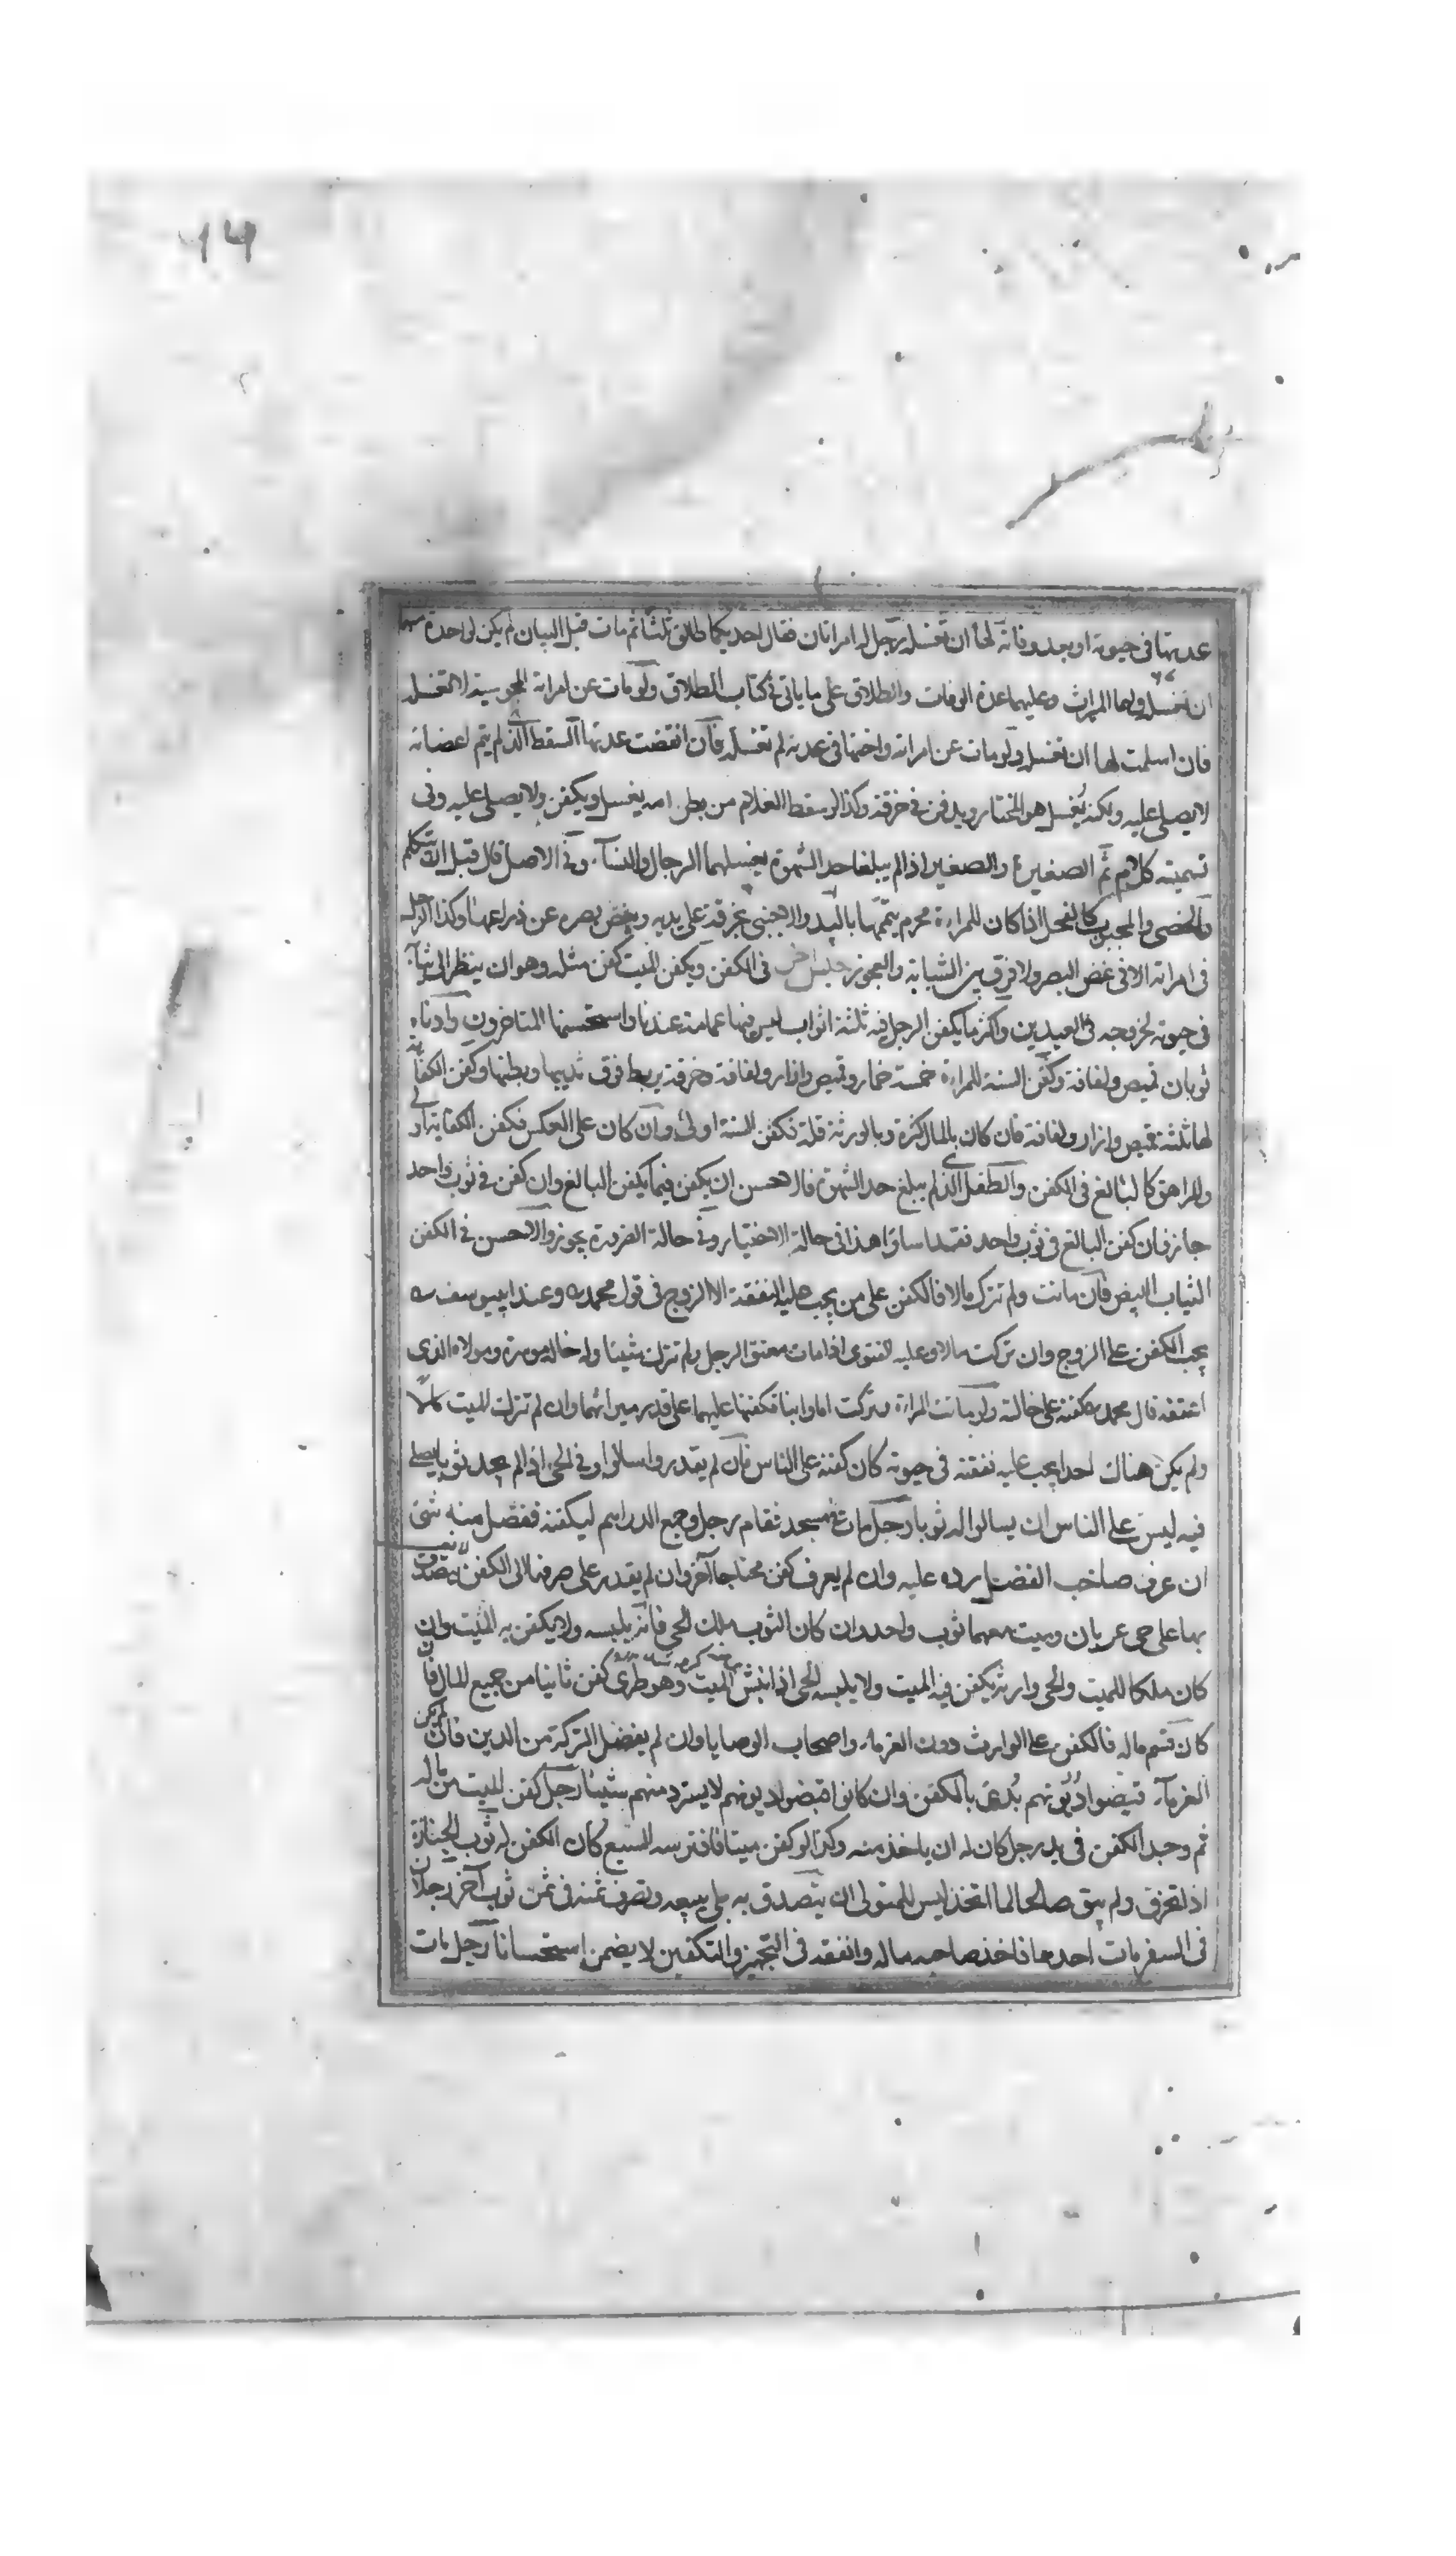 عدتها فى حيوته او بعد وفاته لها ان تغسله رجل له امراتان فقال احديكما طالق ثلثا ثم مات قبل البيان لم يكن لواحدة منهما
ان تغسله ولهما الميراث وعليهما عدة الوفات والطلاق على ما ياتى فى كتاب الطلاق ولو مات عن امراته المجوسية لا تغسله
فان اسلمت لها ان تغسله ولو مات عن امراته واختها فى عدته لم تغسله فان انقضت عدتها السقط الذى لم يتم اعضائه
لا يصلى عليه ولكنه يُغسل هو المختار ويدفن فى خرقة وكذا لو سقط الغلام من بطن امه يغسل ويكفن ولا يصلى عليه وفى
تسميته كلام ثم الصغيرة والصغير اذا لم يبلغا حد الشهوة يغسلهما الرجال والنسآء وفى الاصل قال قبل ان يتكلم
والخصى والمجبوب كالفحل اذا كان للمراءة محرم يتممها باليد والاجنبى بخرقة على يديه ويغض بصره عن ذراعها وكذا الرجل
فى امراته الا فى غض البصر ولا فرق بين الشابة والعجوز جنس اخر فى الكفن ويكفن الميت كفن مثله وهو ان ينظر الى ثيابه
فى حيوته لخروجه فى العيدين واكثر ما يكفن الرجل فيه ثلثة اثواب ليس فيها عمامة عندنا واستحسنها المتاخرون وادناه
ثوبان قميص ولفافة وكفن السنة للمراءة خمسة خمار وقميص وازار ولفافة وخرقة يربط فوق ثدييها وبطنها وكفن الكفاية
لها ثلثة قميص وازار ولفافة فان كان بالمال كثرة وبالورثة قلة فكفن السنة اولى وان كان على العكس فكفن الكفاية اولى
والمراهق كالبالغ فى الكفن والطفل الذى لم يبلغ حد الشهوة فالاحسن ان يكفن فيما يكفن البالغ وان كفن فى ثوب واحد
جاز فان كفن البالغ فى ثوب واحد فقد اساؤا هذا فى حالة الاختيار وفى حالة الضرورة يجوز والاحسن فى الكفن
الثياب البيض فان ماتت ولم تترك مالا فالكفن على من يجب عليه النفقة الا الزوج فى قول محمد ره وعند ابيوسف ره
يجب الكفن على الزوج وان تركت مالا وعليه الفتوى اذا مات معتق الرجل ولم تترك شيئا وله خالة موسرة ومولاه الذى
اعتقه قال محمد ره كفنه على خالته ولو ماتت المراءة وتركت اما وابنا فكفنها عليهما على قدر ميراثهما وان لم تترك للميت مالا
ولم يكن هناك احد يجب عليه نفقته فى حيوته كان كفنه على الناس فان لم يقدروا سالوا وفى الحى اذا لم يجد ثوبا يصلى
فيه ليس على الناس ان يسالوا له ثوبا رجل مات فى مسجد فقام رجل وجمع الدراهم ليكفنه ففضل منه شئ
ان عرف صاحب الفضل يرده عليه وان لم يعرف كفن محتاجا آخر وان لم يقدر على صرفها الى الكفن تصدق
بها على حى عريان وميت معهما ثوب واحد ان كان الثوب ملك الحى فانه يلبسه ولا يكفن به الميت وان
كان ملكا للميت والحى وارثه يكفن فيه الميت ولا يلبسه الحى اذا نبش الميت وهو طرى كفن ثانيا من جميع المال فان
كان قسم ماله فالكفن على الوارث دون الغرماء واصحاب الوصايا وان لم يفضل التركة من الدين فان لم يكن
الغرمآء قبضوا ديونهم بُدئ بالكفن وان كانوا قبضوا ديونهم لا يسترد منهم شيئا رجل كفن الميت من ماله
ثم وجد الكفن فى يد رجل كان له ان ياخذ منه وكذا لو كفن ميتا فافترسه السبع كان الكفن له ثوب الجنازة
اذا تخرق ولم يبق صالحا لما اتخذ ليس للمتولى ان يتصدق به بل يبيعه وتصرف ثمنه فى ثمن ثوب آخر رجلان
فى السفر مات احدهما فاخذ صاحبه ماله وانفقه فى التجهيز والتكفين لا يضمن استحسانا رجل مات